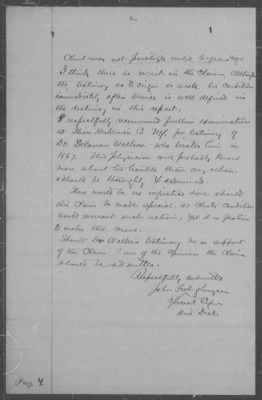 2
Clmt was not paralytic until 6 years ago
I think there is merit in the Claim, although
the testimony as to origin is weak his condition
immediately after service is well defined in
the testimony in this report.
I respectfully recommend further examination
at for testimony of
Dr.                who treated him in
1867. This Physician will probably know
more about his trouble than any other
& should be thoroughly Examined.
There would be no injustice done should
this Claim be made special, as Clmts Condition
would warrant such action, Yet it is
to make this
Should Dr testimony be in support
of the Claim, I am of the Opinion the Claim
should be admitted.
Respectfully submitted
John
Special Exr
Dist.
Page 4